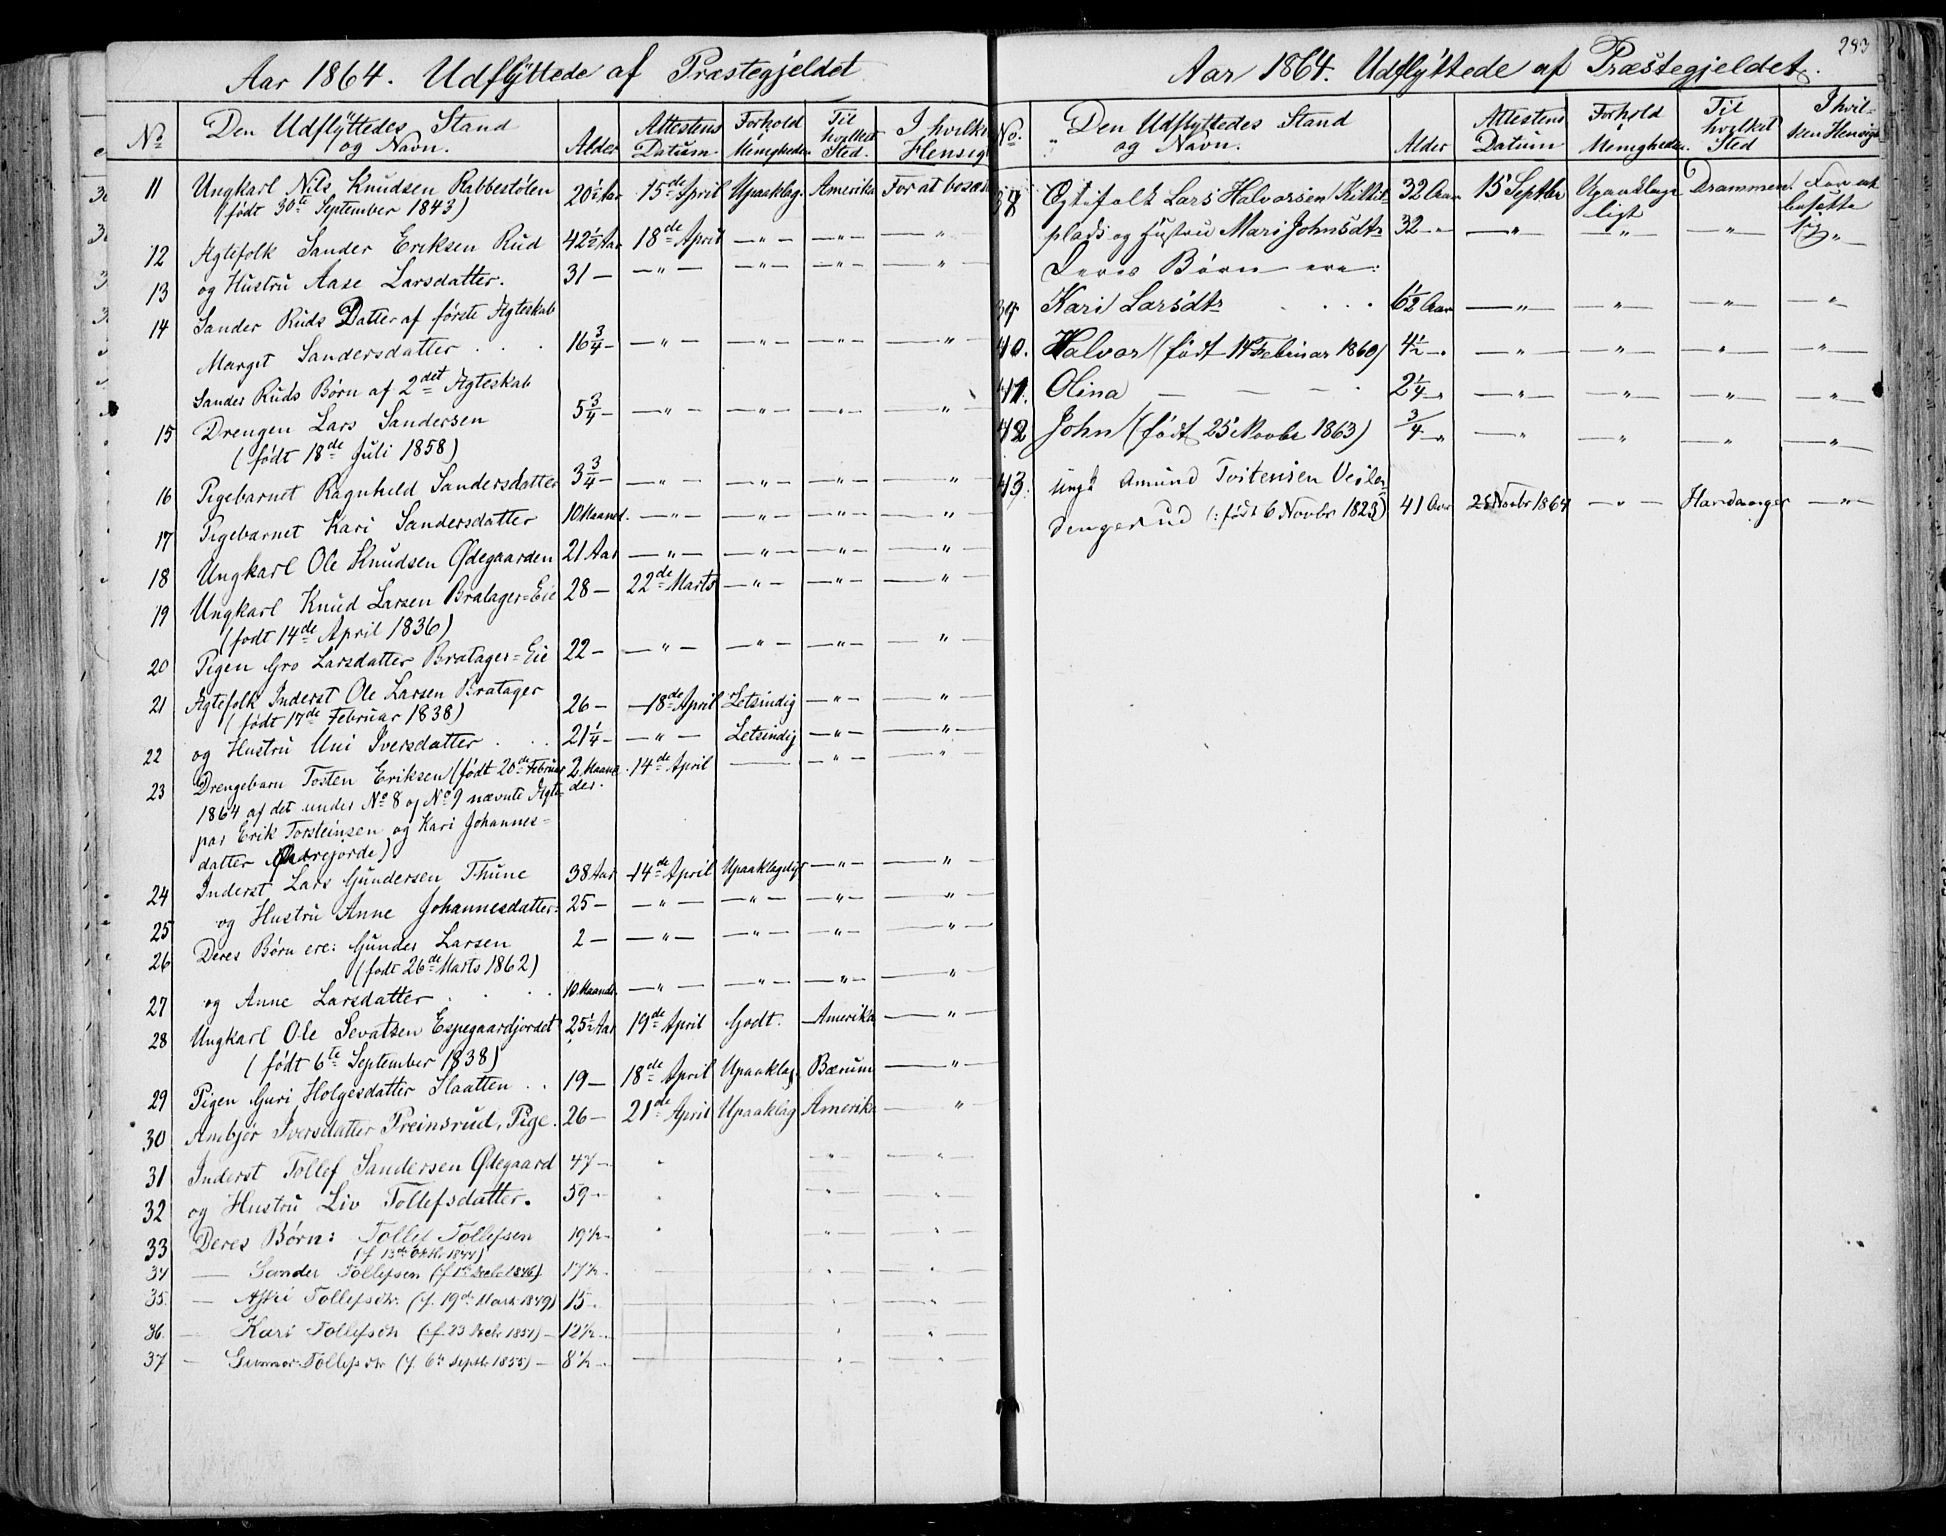 Aar 1864. Udflyttede af Præstegjeldet
No Den Udflyttedes Stand og Navn. Alder Attestens Datum Forhold i Menigheden Til hvilket Sted. I hvilk Hensigt
11 Ungkarl Nils Knudsen Rabbestølen 20½ Aar 15de April Upaaklag. Amerika For at besæt
(født 30te September 1843)
12 Ægtefolk Sander Eriksen Rud 42½ Aar 18de April — " — — " — — "
13 og Hustru Aase Larsdatter. 31 — — " — — " — — " — — "
14 Sander Ruds Datter af første Ægteskab
Margit Sandersdatter . . . 16¾ — — " — — " — — " — — "
Sander Ruds Børn af 2det Ægteskab
15 Drengen Lars Sandersen 5¾ — — " — — " — — " — — "
(født 18de Juli 1858)
16 Pigebarnet Ragnhild Sandersdatter 3¾ — — " — — " — — " — — "
17 Pigebarnet Kari Sandersdatter 10 Maaned. — " — — " — — " — — "
18 Ungkarl Ole Knudsen Ødegaarden 21 Aar — " — — " — — " — — "
19 Ungkarl Knud Larsen Bratager=Eie 28 — 22de Marts — " — — " — — "
(født 14de April 1836)
20 Pigen Gro Larsdatter Bratager=Eie 22 — — " — — " — — " — — "
21 Ægtefolk Inderst Ole Larsen Bratager 26 — 18de April Letsindig — " — — "
(født 17de Februar 1838)
22 og Hustru Uni Iversdatter . . . 21¼ — — " — Letsindig — " — — "
23 Drengebarn Tosten Eriksen (født 20de Februar 2 Maane 14de April — — " — — "
1864 af det under No 8 og No 9 nævnte Ægte= der.
par Erik Torsteinsen og Kari Johannes=
datter
24 Inderst Lars Gundersen Thune 38 Aar 14de April Upaaklageligt — " — — "
25 og Hustru Anne Johannesdatter: 25 — — " — — " — — " — — "
26 Deres Børn ere: Gunder Larsen 2 — — " — — " — — " — — "
(født 26de Marts 1862)
27 og Anne Larsdatter . . . 10 Maaned. — " — — " — — " — — "
28 Ungkarl Ole Sevatsen Espegaardjordet 25½ Aar 19de April Godt. Amerika — "
(født 6te September 1838)
29 Pigen Guri Holgesdatter Slaatten . . 19 — 18de April Upaaklag. Bærum — "
30 Ambjør Iversdatter Treinsrud, Pige. 26 — 21de April Upaaklag Amerika — "
31 Inderst Tollef Sandersen Ødegaard 47 — " — " — — " —
32 og Hustru Liv Tollefsdatter. 59 — " — " — — " —
33 Deres Børn: Tollef Tollefsen 19½ — " — " — — " —
(f 13de Oktbr 1844)
34 — Sander Tollefsen (f 1ste Decbr 1846) 17½ —
35. — Tollefsdtr. (f. 19de Marts 1849) 15 —
36. — Kari Tollefsdtr (f. 23 Decbr 1851) — 12½ —
37 — Gunnor Tollefsdtr (f. 6te Septbr 1855) — 8½ —
283
Aar 1864. Udflyttede af Præstegjeldet.
No. Den Udflyttedes Stand og Navn. Alder Attestens Datum Forhold i Menigheden. Til hvilket Sted I hvil= ken Hensigt
38 Ægtefolk Lars Halvorsen 32 Aar 15 Septbr Upaaklage ligt Drammen For at besætte sig
plads og Hustru Mari Johnsdtr 32 — " — " — — " — — " — "
Deres Børn ere:
39 Kari Larsdtr . . . 6½ Aar — " — — " — — " — — " —
40. Halvor (født 14 Februar 1860) 4½ — " — " — — " — — " — — " —
41. Olina — — — 2¼ — " — " — — " — — " — — " —
42 John (født 25 Novbr 1863) ¾ — " — " — — " — — " — — " —
43. Amund Tostensen Veslen=
dengerud (: født 6 Novbr 1823) 41 Aar 25 Novbr 1864 — " — Hardanger — " —